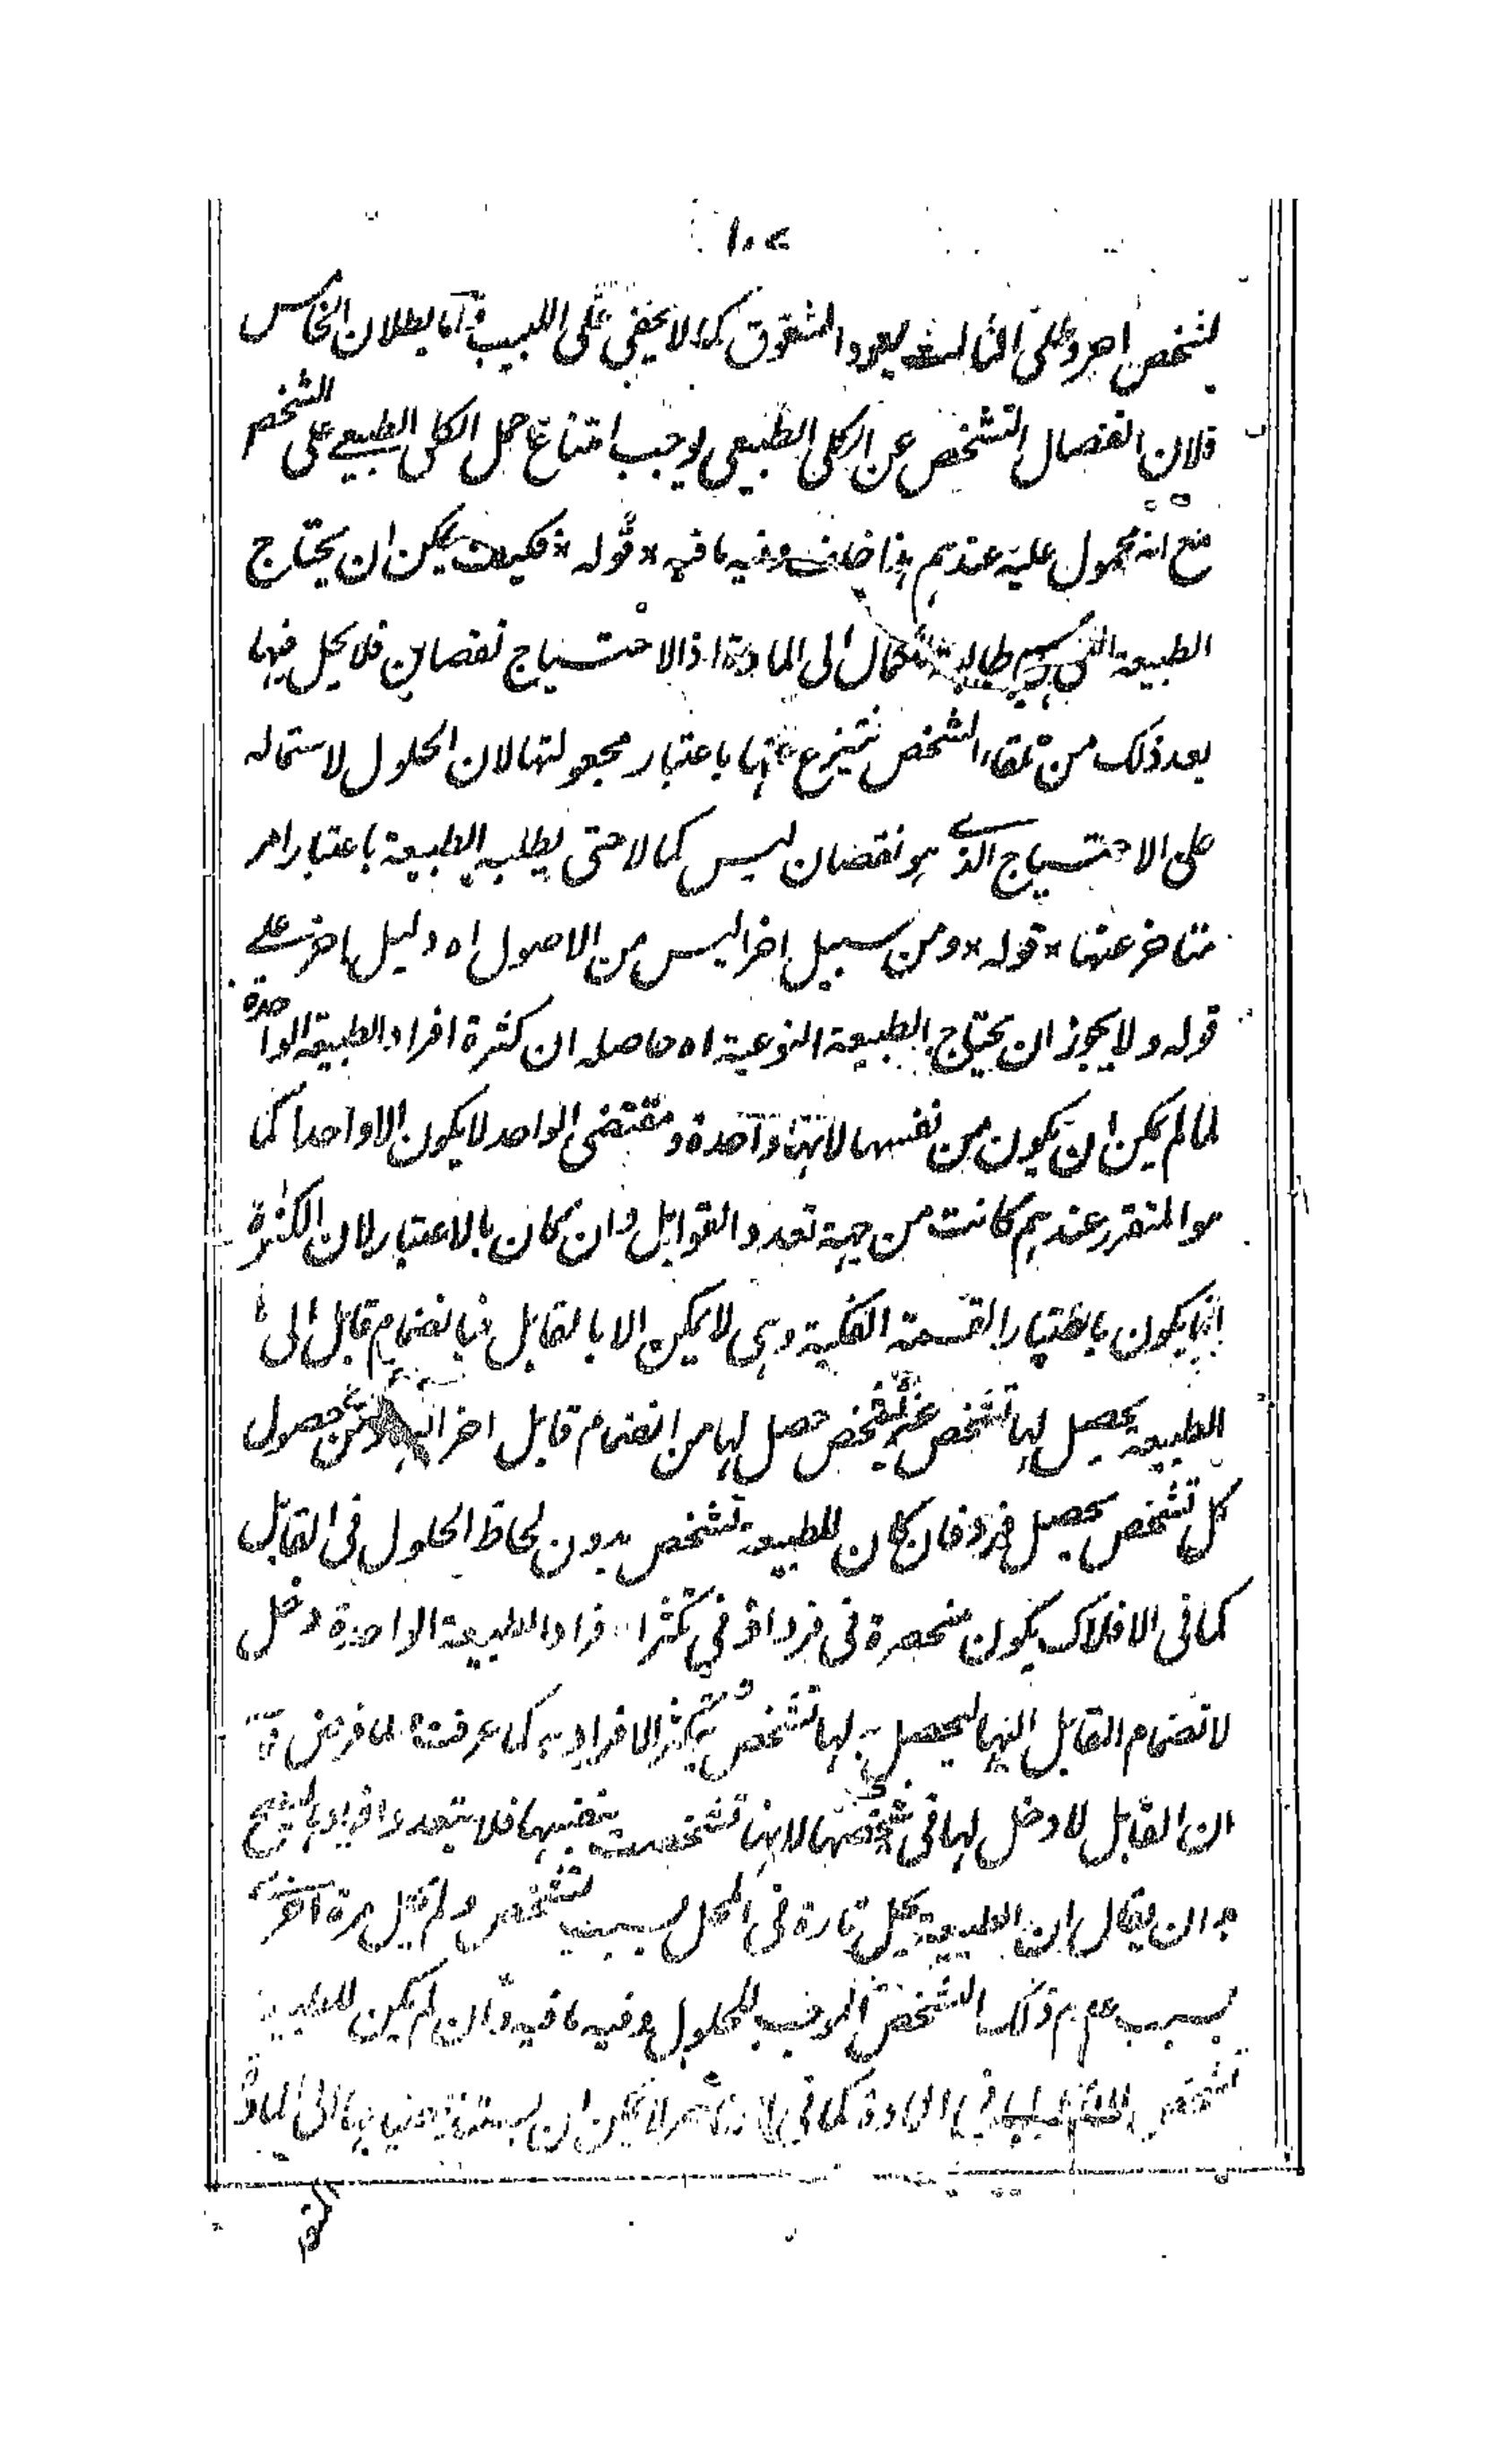 ١٠٢
لتشخص اخر وعلى الثالث يعود الشقوق كما لا يخفى على اللبيب واما بطلان الخامس
فلان انفصال التشخص عن الكلى الطبيعى يوجب امتناع حمل الكلى الطبيعى على الشخص
مع انه محمول عليه عندهم هذا خلف وفيه ما فيه * قوله * فكيف يمكن ان يحتاج
الطبيعة التى هى طالبة الكمال الى المادة اذ الاحتياج نقصان فلا يحل فيها
بعد ذلك من تلقاء التشخص ينتزع عنها باعتبار مجعولتها لان الحلول لاشتماله
على الاحتياج الذى هو نقصان ليس كمالا حتى يطلبه الطبيعة باعتبار امر
متاخر عنها * قوله * ومن سبيل اخر اليس من الاصول اه دليل اخر على
قوله ولا يجوز ان يحتاج الطبيعة النوعية اه حاصله ان كثرة افراد الطبيعة الواحدة
لما لم يمكن ان يكون من نفسها لانها واحدة ومقتضى الواحد لا يكون الا واحدا كما
هو المتقرر عندهم كانت من جهة تعدد القوابل وان كان بالاعتبار لان الكثرة
انما يكون باعتبار القسمة الفكية وهى لا يمكن الا بالقابل فبانضمام قابل الى
الطبيعة يحصل لها تشخص غير تشخص حصل لها من انضمام قابل اخر اليها ومن حصول
كل تشخص يحصل فرد فان كان للطبيعة تشخص بدون لحاظ الحلول فى القابل
كما فى الافلاك يكون منحصرة فى فرد اذ فى تكثر افراد الطبيعة الواحدة دخل
لانضمام القابل اليها ليحصل به لها تشخص ويتكثر الافراد به كما عرفت لما فرض
ان القابل لا دخل لها فى تشخصها لانها تشخصت بنفسها فلا يتعدد افرادها
ان يقال ان الطبيعة يحل تارة فى المحل بسبب تشخص ولم يحل مرة اخرى
بسبب عدم ذلك التشخص الموجب للحلول وفيه ما فيه وان لم يكن للطبيعة
تشخص فى المادة كما فى لا يمكن ان يستغنى الى المادة